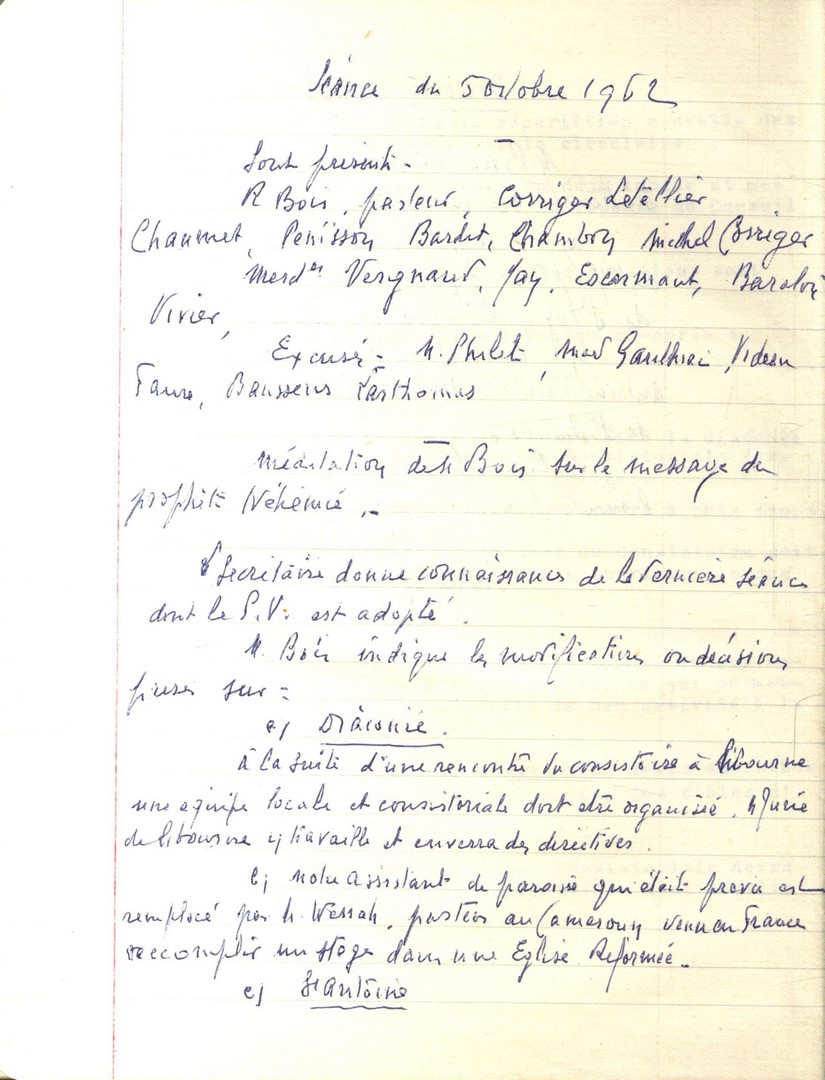 Séance du 5 Octobre 1962
Sont présents -
R Bois, pasteur, Corriger Letellier
Chaumet, Penisson Bardet, Chambon Michel Corriger
Mesdes Vergnaud, Jay, Escarmant,
Vivier,
Excusés = M. Philit, Mad Gauthier, Videau
Faure, Bausseus Parthomas
Méditation de M Bois sur le message du
prophète Néhémie. -
Secrétaire donne connaissance de la dernière séance
dont le P.V. est adopté.
M. Bois indique les modifications ou décisions
prises sur =
a) Diaconie.
à la suite d'une rencontre du consistoire à Libourne
une équipe locale et consistoriale doit etre organisée.
de Libourne y travaille et enverra des directives.
b) notre assistant de paroisse qui était prévu est
remplacé par M. Wessah, pasteur au Cameroun venu en France
accomplir un stage dans une Eglise Réformée -
c) St Antoine